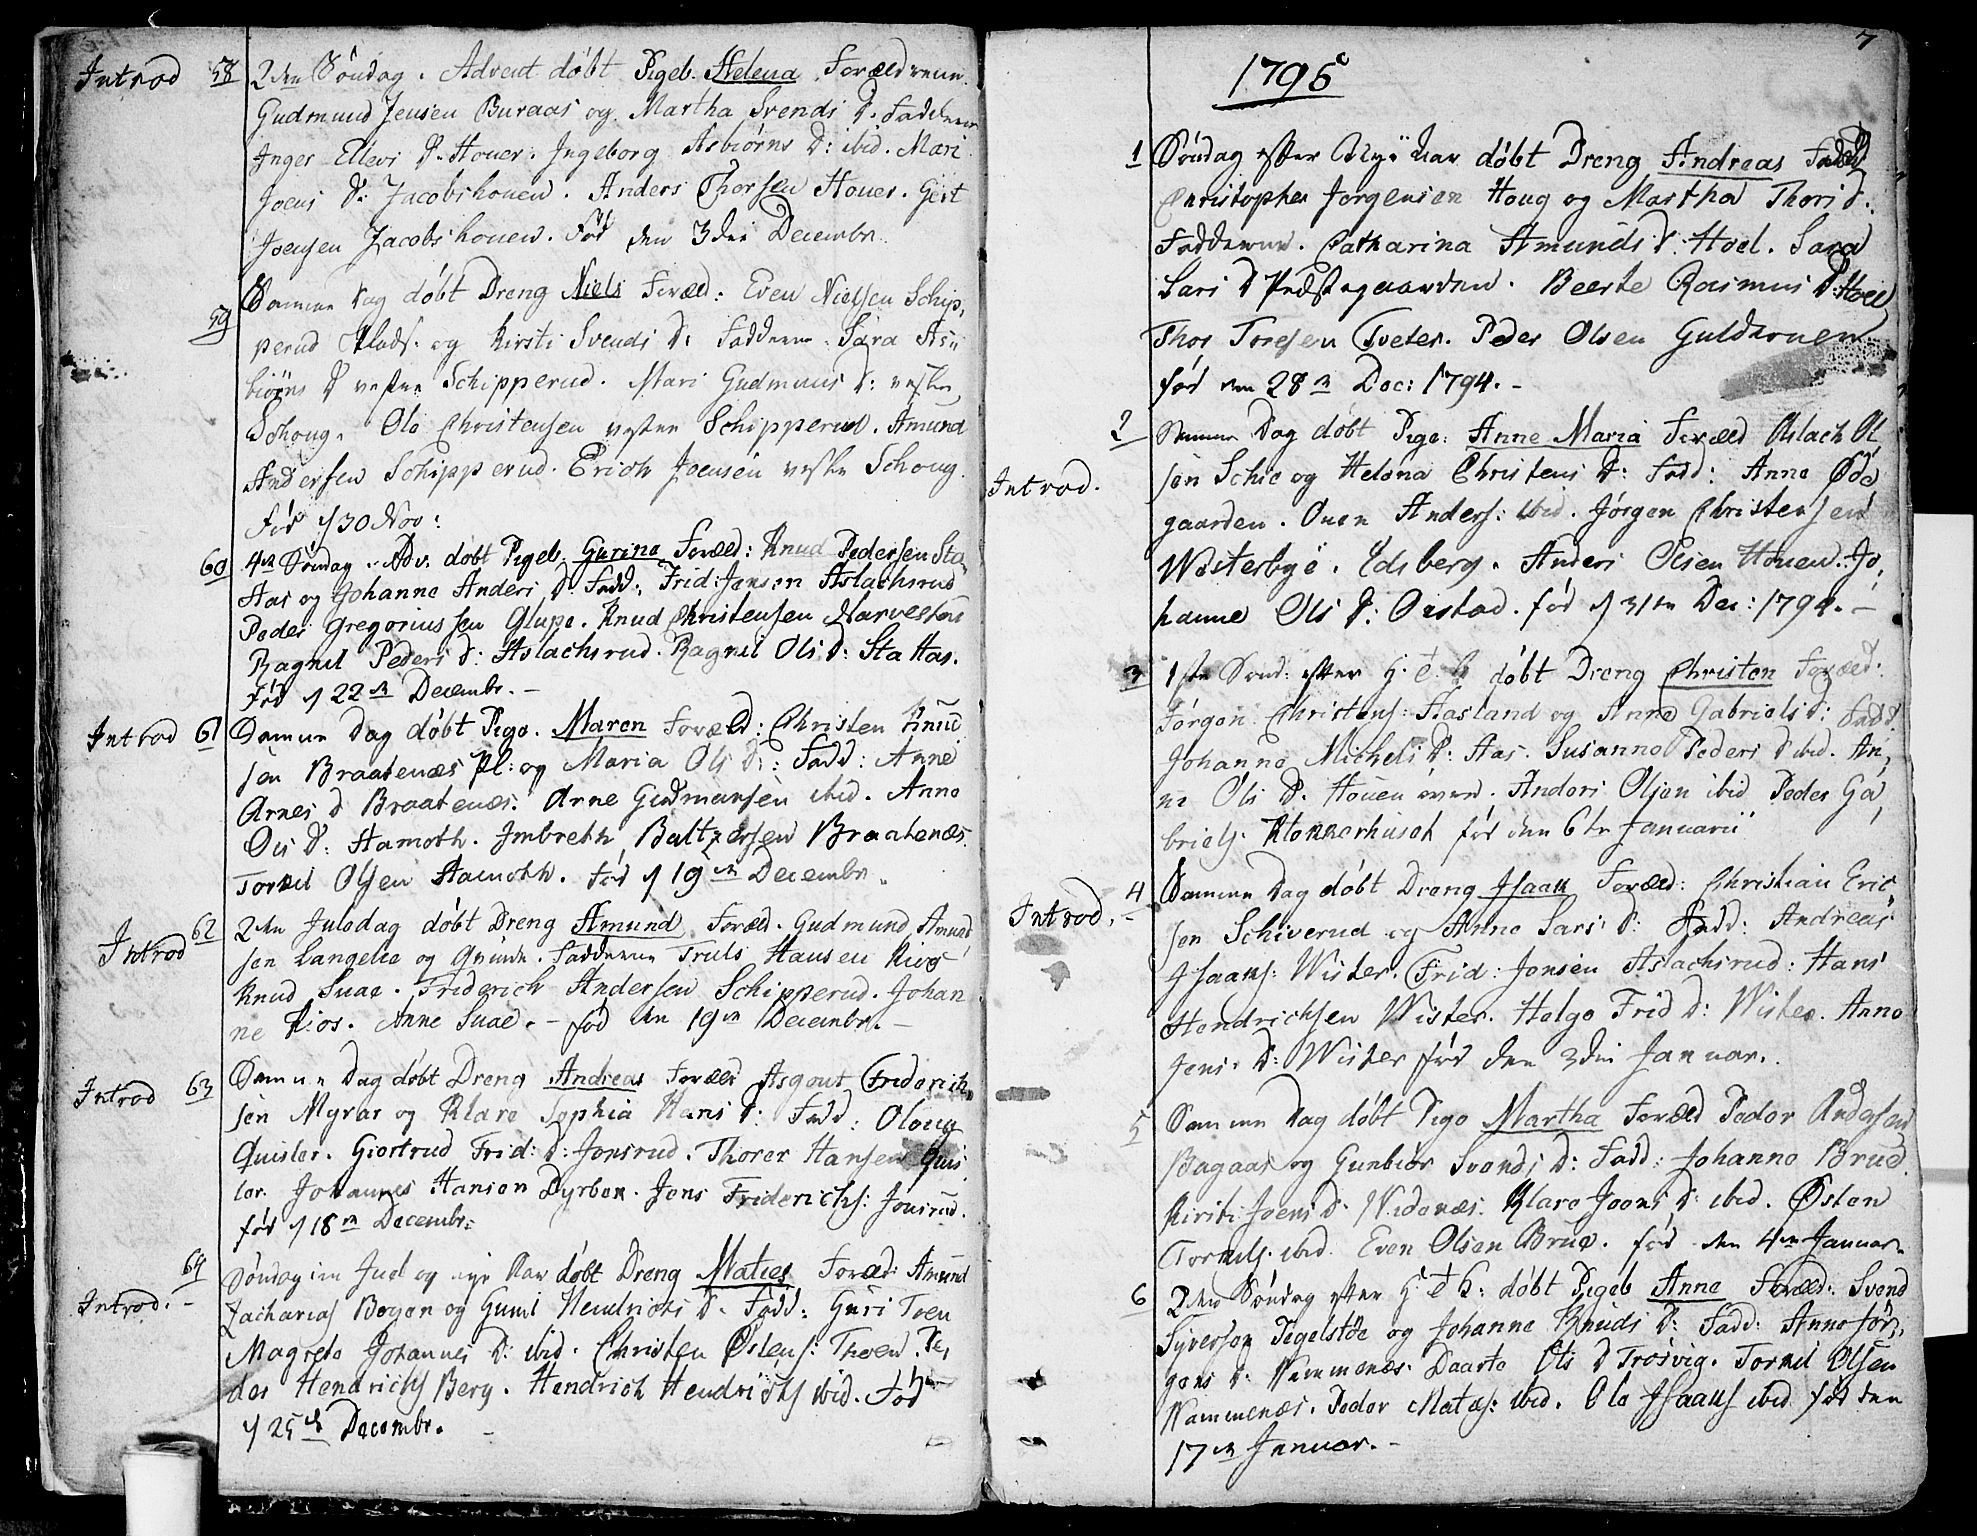 Introd 58 2den Søndag i Advent døbt Pigeb. Helena Forældrene
Gudmund Jensen Buraas og Martha Svends D. Fadderne
Inger Ellevs D. Houer. Ingeborg Asbiørns D: ibid. Mari
Joens D: Jacobshouen. Anders Thorsen Houer. Gert
Joensen Jacobshouen. Fød den 3die Decembr.
59 Samme Dag døbt Dreng Niels Foræld: Even Nielsen Schip,
perud Plads. og Kirsti Svends D: Fadderne Sara As,,
biørns D vestre Schipperud. Mari Gudmuns D: vestre
Schoug. Ole Christensen vestre Schipperud. Amund
Andersen Schipperud. Erich Joensen vestre Schoug.
Fød d 30 Nov:
60 4de Søndag i Adv. døbt Pigeb. Gurine Foræld: Knud Pedersen Sta
Aas og Johanne Anders D. Fadd: Frid: Jensen Aslachsrud
Peder Gregoriussen Glupe. Knud Christensen Narvestad
Ragnil Peders D: Aslachsrud. Ragnil Ols D: Sta Aas.
Fød d 22de Decembr. –
Introd 61 Samme Dag døbt Pige. Maren Foræld: Christen Knud
sen Braatenæs Pl: og Maria Ols D: Fadd: Anne
Arnes D Braatenæs. Arne Gudmansen ibid. Anne
Ols D: Aamoth. Imbreth Baltzersen Braatenæs.
Torkel Olsen Aamoth. Fød d 19de Decembr.
Introd 62 2den Juledag døbt Dreng Amund Foræld. Gudmund Amund
sen Langelie og Gunild. Fadderne Truls Hansen Kios
Knud Suae. Friderich Andersen Schipperud. Johan
ne Kios. Anne Suae. – fød den 19de Decembr. –
Introd 63 Samme Dag døbt Dreng Andreas Foræld Asgout Friderich
sen Myrar og Klare Sophia Hans D: Fadd: Oloug
Quisler. Giertrud Frid: D: Jonsrud. Thorer Hansen Quis
ler. Johannes Hansen Dyrben. Jens Friderichs: Jonsrud.
fød d 18de Decembr:
Introd. – 64 Søndag im Juel og nye Aar døbt Dreng Maties Foræld: Amund
Zacharias Bøyen og Gunil Hendrichs D. Fadd: Guri Toen
Magrete Johannes D: ibid. Christen Østens: Thoen. Pe,
der Hendrichs Berg. Hendrich Hendrichs ibid. Fød
d 25de Decembr.
7
1795
1 Søndag efter Nye Aar døbt Dreng Andreas Foræld
Christopher Jørgensen Houg og Martha Thors D.
Fadderne. Catharina Amunds D: Hoel. Sara
Lars D Prestegaarden. Beerte Rasmus D: Hoel
Thor Toresen Tveter. Peder Olsen Guldarnen
fød den 28de Dec: 1794. –
2 Samme Dag døbt Pige: Anne Maria Foræld Aslach Ol
Introd. sen Schie og Helena Christens D: Fadd: Anne Øde
gaarden. Ouen Anders: ibid. Jørgen Christensen
Westerbye i Edsberg. Anders Olsen Houen. Jo,
hanne Ols D: Orstad. fød d 31te Dec: 1794. –
3 1ste Sønd: efter H. 3 K døbt Dreng Christen Foræld:
Jørgen Christens: Aasland og Anne Gabriels D: Fadd.
Johanne Michels D: Aas. Susanne Peders D ibid. An,
ne Ols D. Houen øvre. Anders Olsen ibid Peder Ga,
briels. Klokkerhuset fød den 6te Januarii
Introd. – 4 Samme Dag døbt Dreng Isaak Foræld: Christian Eric
sen Schiverud og Anne Lars D: Fadd: Andreas
Isaaks: Wister. Frid: Jensen Aslachsrud: Hans
Hendrichsen Wister. Helge Frid D: Wister. Anne
Jens D: Wister fød den 3die Januar.
5 Samme Dag døbt Pige Martha Foræld Peder Andersen
Bagaas og Gunbior Svends D: Fadd: Johanne Brud.
Kirsti Joens D. Widenæs. Klare Joens D: ibid. Østen
Torkels. ibid. Even Olsen Brue. fød den 4de Januar.
6 2den Søndag efter H 3 K: døbt Pigeb Anne Foræld: Svend
Syversen Pegelstøe og Johanne Knuds D: Fadd: Anne Jør,
gens D: Wammenæs. Daarte Ols D Trosvig. Torkel Olsen
Wammenæs. Peder Matis: ibid. Ole Isaaks ibid fød den
17de Januar. –